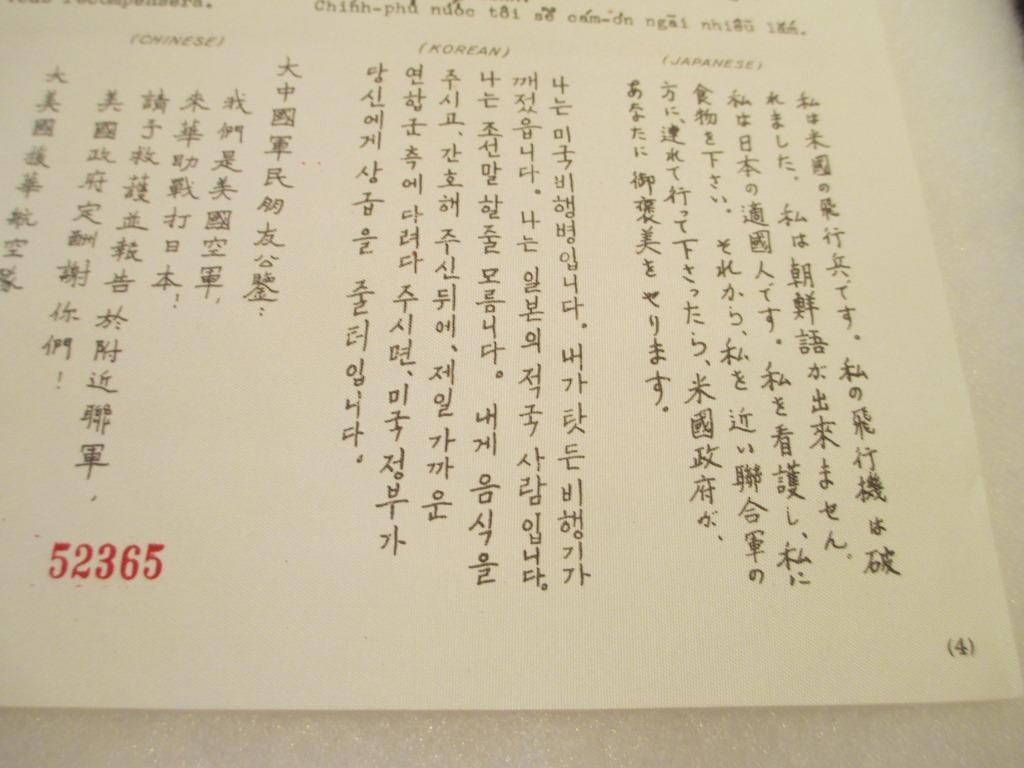 recompensera.
Chính-phủ nước tôi sẽ cám-ơn ngãi nhiêũ lắm.
(CHINESE)
大中國軍民朋友公鑒:
我們是美國空軍,
來華助戰打日本!
請予救護並報告於附近聯軍,
美國政府定酬謝你們!
大美國援華航空隊
(KOREAN)
나는 미국 비행병입니다. 내가 탓든 비행기가
깨젔읍니다. 나는 일본의 적국 사람입니다.
나는 조선말 할줄 모름니다. 내게 음식을
주시고, 간호해 주신뒤에, 제일 가까운
연합군 측에 다려다 주시면, 미국 정부가
당신에게 상급을 줄터입니다.
(JAPANESE)
私は米國の飛行兵です。私の飛行機は破
れました。私は朝鮮語が出來ません。
私は日本の適國人です。私を看護し、私に
食物を下さい。それから、私を近い聯合軍の
方に連れて行って下さったら、米國政府が、
あなたに御褒美をやります。
52365
(4)